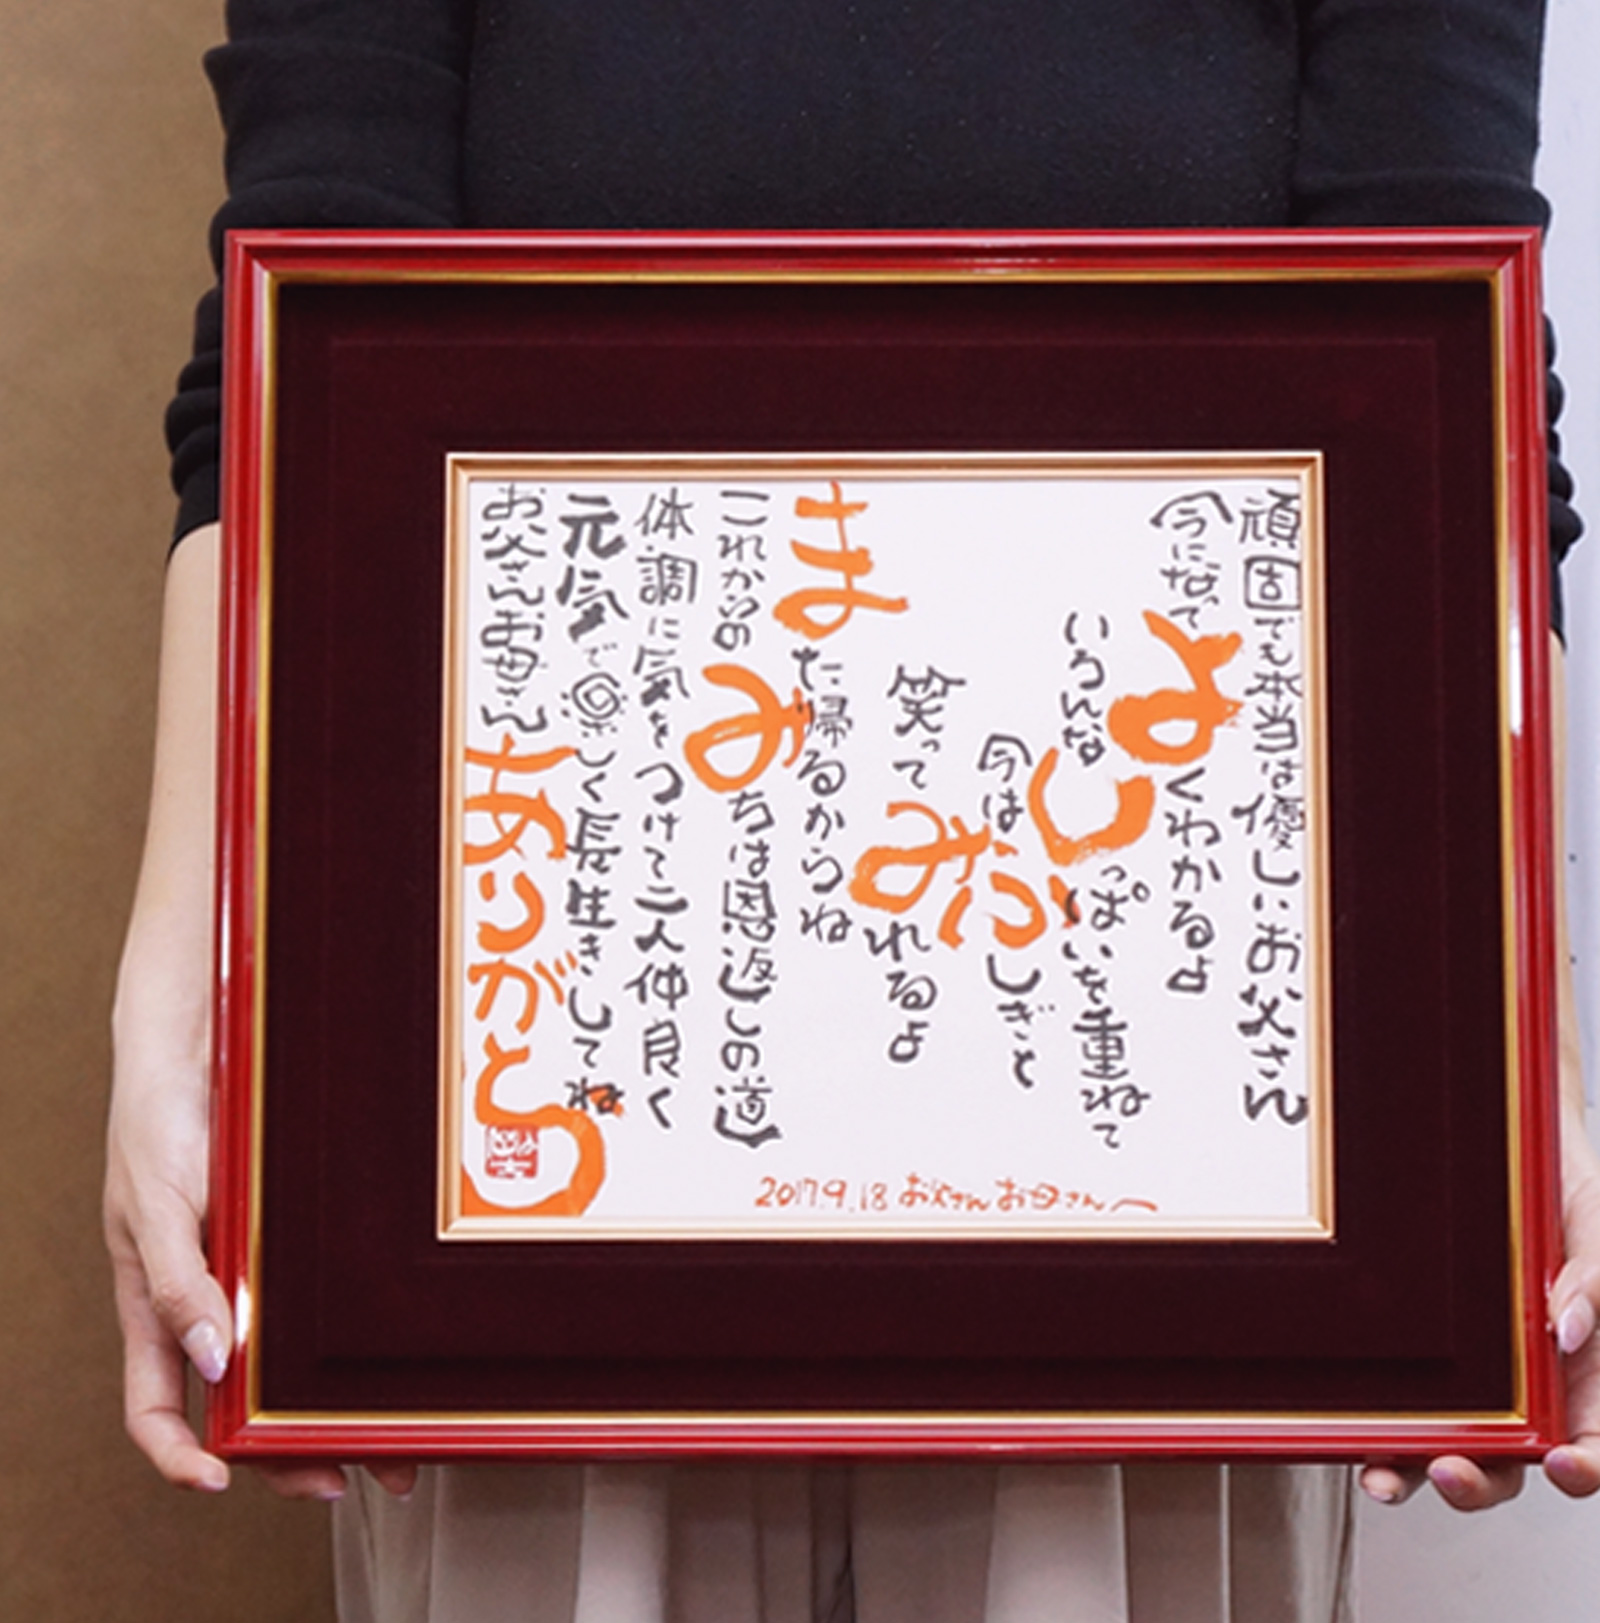 頑固でも本当は優しいお父さん
今になってよくわかるよ
いろんなしっぱいを重ねて
今はふしぎと
笑ってみれるよ
また帰るからね
これからのみちは恩返しの道
体調に気をつけて二人仲良く
元気で楽しく長生きしてね
お父さんお母さんありがとう
2017.9.18 お父さんお母さんへ